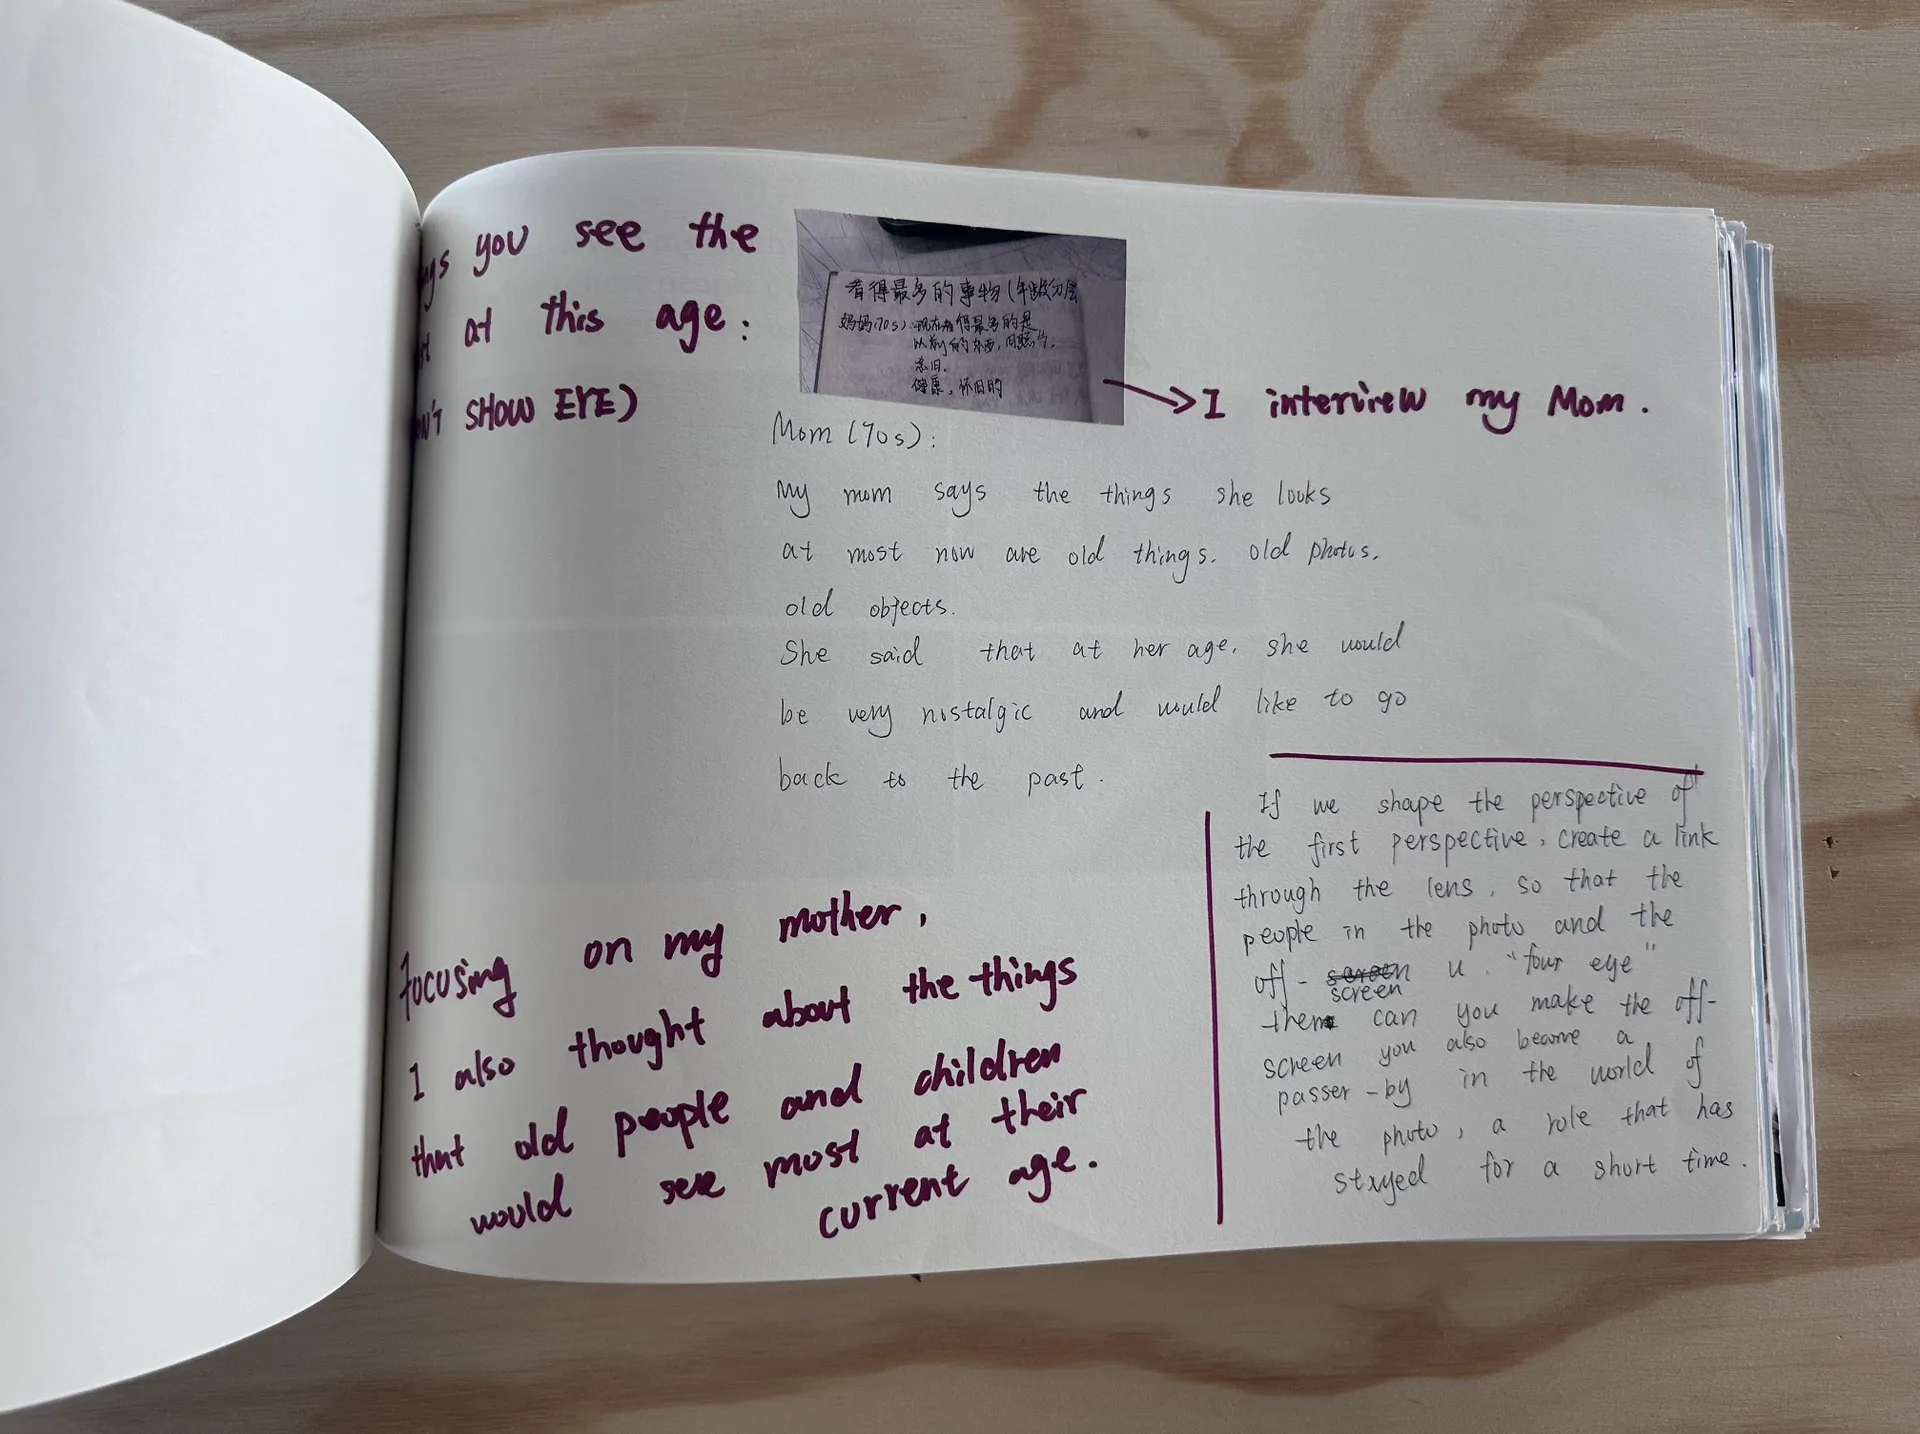 you see the
at this age:
SHOW EYE)
看得最多的事物(年龄分层
妈妈(70s):现在看得最多的是
以前的东西,旧照片.
念旧.
健康,怀旧的
I interview my Mom.
Mom (70s):
My mom says the things she looks
at most now are old things. old photos.
old objects.
She said that at her age. she would
be very nostalgic and would like to go
back to the past.
Focusing on my mother,
I also thought about the things
that old people and children
would see most at their
current age.
If we shape the perspective of
the first perspective, create a link
through the lens, so that the
people in the photo and the
off-screen u. "four eye"
screen
then can you make the off-
screen you also become a
passer-by in the world of
the photo, a role that has
stayed for a short time.